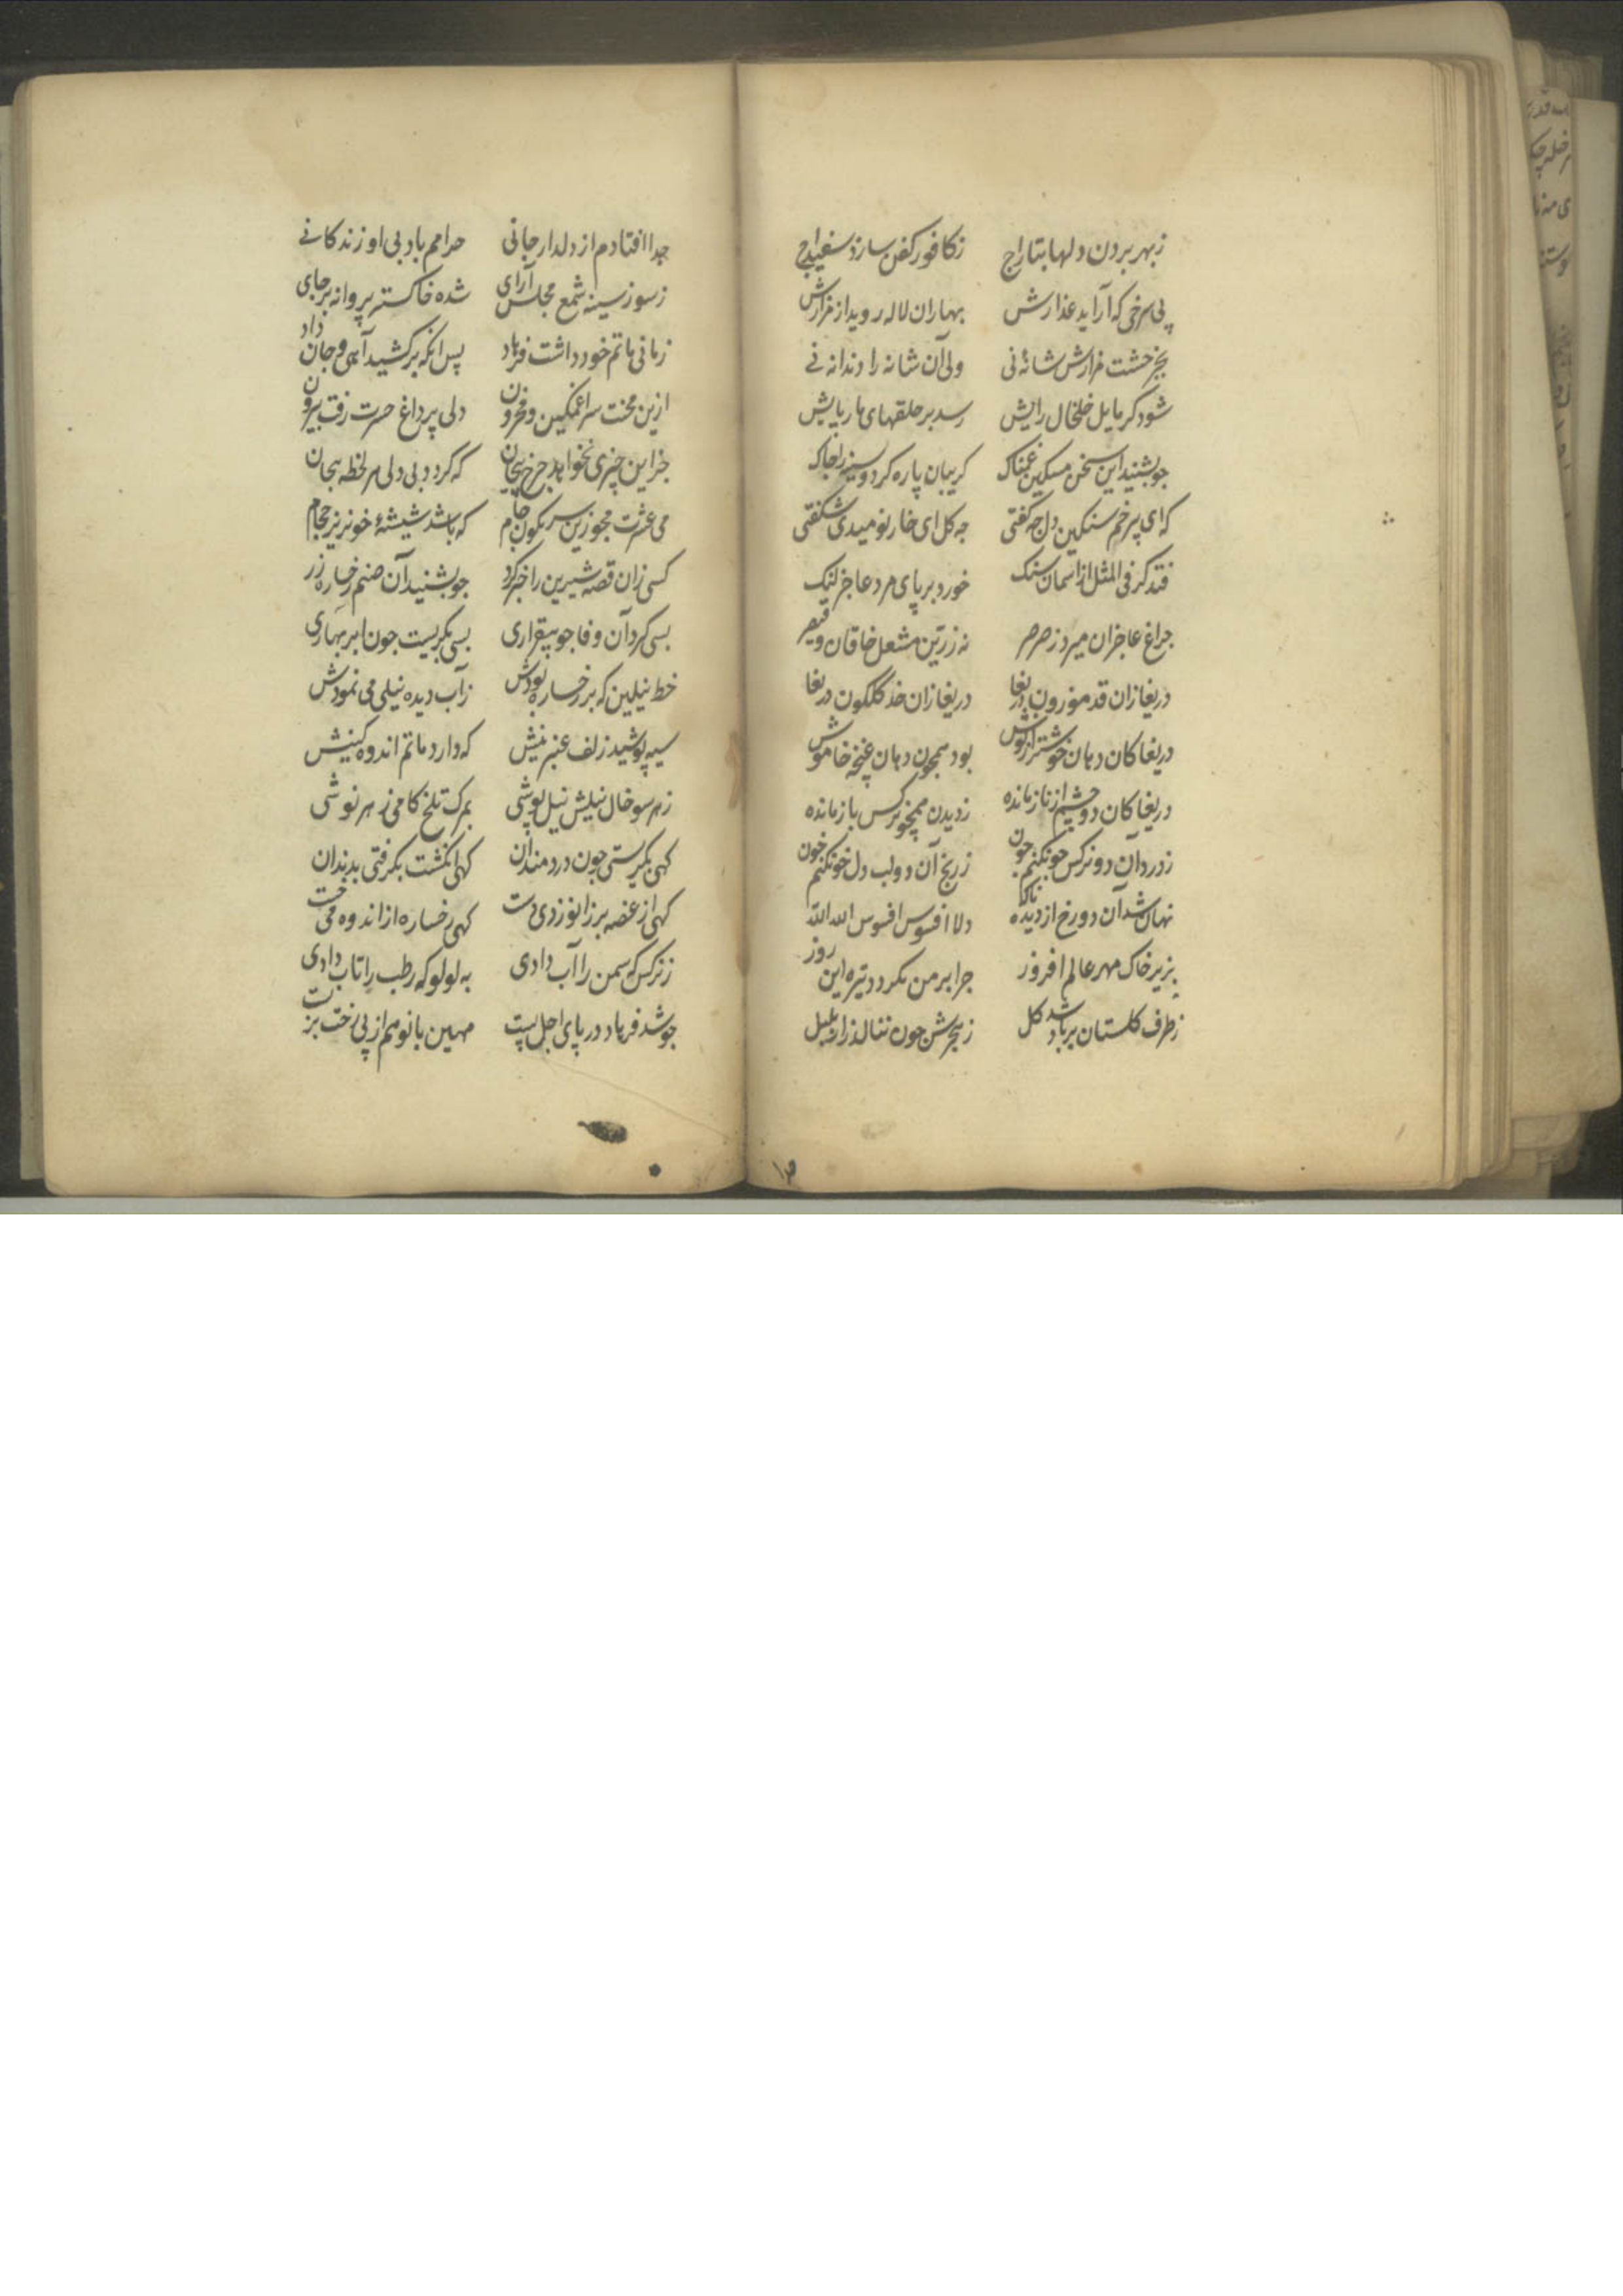 زبهر بردن دلها بتاراج زکافور کفن سازد سفیداج
پی سرخی که آراید عذارش بهاران لاله روید از مزارش
بجز خشت مزارش شانهٔ نی ولی آن شانه را دندانه نی
شود کر مایل خلخال رایش رسد بر حلقهای مار پایش
جو بشنید این سخن مسکین غمناک کریبان پاره کرد و سینه زد جاک
که ای پر خم سنکین دل جه کفتی جه کل ای خار نومیدی شکفتی
فتد کر فی المثل از اسمان سنک خورد بر پای مرد عاجز لنک
جراغ عاجزان میرد ز صرصر نه زرین مشعل خاقان و قیصر
دریغا زان قد موزون دریغا دریغا زان خد کلکون دریغا
دریغا کان دهان خوشتر از نوش بود همجون دهان غنچه خاموش
دریغا کان دو چشم از ناز مانده ز دیدن همچو نرکس باز مانده
ز درد آن دو نرکس جو نکنم جون ز رنج آن دو لب دل خو نکنم خون
نهان شد آن دو رخ از دیده ناکاه دلا افسوس افسوس الله الله
بزیر خاک مهر عالم افروز جرا بر من نکردد تیره این روز
ز طرف کلستان بر باد شد کل ز هجرش جون ننالد زار بلبل
۱۳
جدا افتادم از دلدار جانی حرامم باد بی او زندکانی
ز سوز سینه شمع مجلس آرای شده خاکستر پروانه بر جای
زمانی ماتم خود داشت فرهاد پس انکه برکشید آهی و جان داد
ازین محنت سرا غمکین و محزون دلی پر داغ حسرت رفت بیرون
جز این چیزی نخواهد جرخ بیجان که کردد بی دلی هر لحظه بیجان
می عشرت مجوزین سرنکون جام که باشد شیشهٔ خونریز حجام
کسی زان قصه شیرین را خبر کرد جو بشنید آن صنم رخساره زر
بسی کرد آن وفا جو بیقراری بسی بکریست جون ابر بهاری
خط نیلین که بر رخساره بودش ز آب دیده نیلی می نمودش
سیه پوشید زلف عنبرینش که دارد ماتم اندوه کینش
ز هر سو خال نیلش نیل پوشی بمرک تلخ کامی زهر نوشی
کهی بکریستی چون دردمندان کهی انکشت بکرفتی بدندان
کهی از غصه بر زانو زدی دست کهی رخساره از اندوه می خست
ز نرکس که سمن را آب دادی به لولو که رطب را تاب دادی
جو شد فرهاد در پای اجل پست مهین بانو هم از پی رخت بر بست